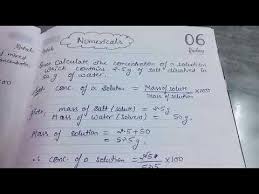 Numericals
06
Friday
Ques Calculate the concentration of a solution
which contains 2.5 g of salt dissolved in
50 g of water.
conc of a solution = Mass of solute / Mass of solution ×100
mass of salt (solute) = 2.5g
Mass of water (solvent) = 50g.
Mass of solution = 2.5 + 50
= 52.5g
∴ conc of a solution = 2.5 / 52.5 ×100